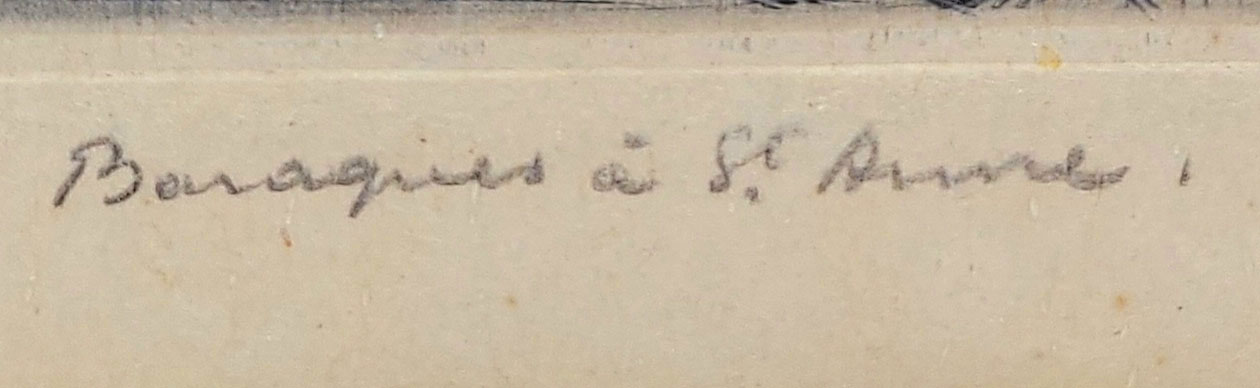 Baraques à St. Anne.